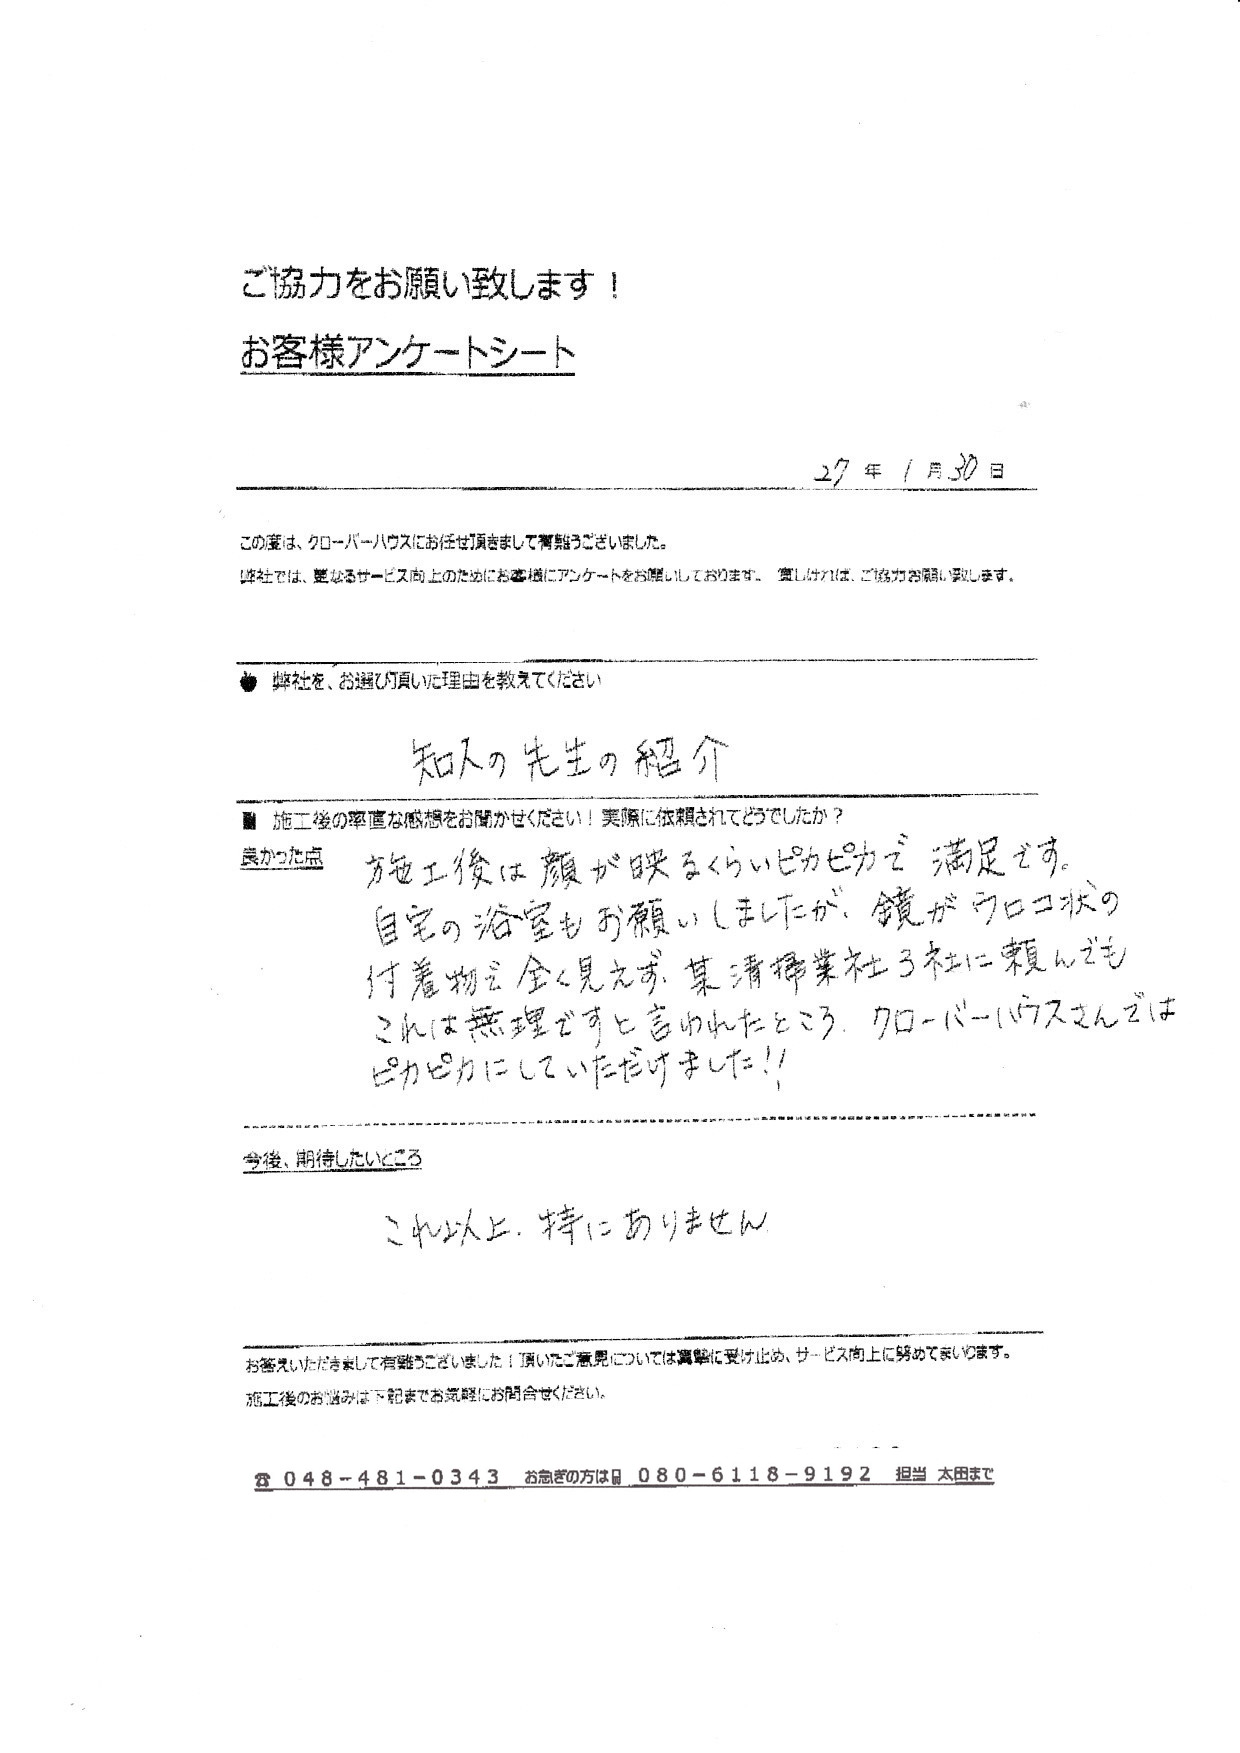 ご協力をお願い致します！
お客様アンケートシート
27 年 1 月 30 日
この度は、クローバーハウスにお任せ頂きまして有難うございました。
弊社では、更なるサービス向上のためにお客様にアンケートをお願いしております。 宜しければ、ご協力お願い致します。
弊社を、お選び頂いた理由を教えてください
知人の先生の紹介
施工後の率直な感想をお聞かせください！実際に依頼されてどうでしたか？
良かった点
施工後は顔が映るくらいピカピカで満足です。
自宅の浴室もお願いしましたが、鏡がウロコ状の
付着物で全く見えず、某清掃業社3社に頼んでも
これは無理ですと言われたところ、クローバーハウスさんでは
ピカピカにしていただけました!!
今後、期待したいところ
これ以上、特にありません
お答えいただきまして有難うございました！頂いたご意見については真摯に受け止め、サービス向上に努めてまいります。
施工後のお悩みは下記までお気軽にお問合せください。
☎ 048-481-0343 お急ぎの方は 080-6118-9192 担当 太田まで